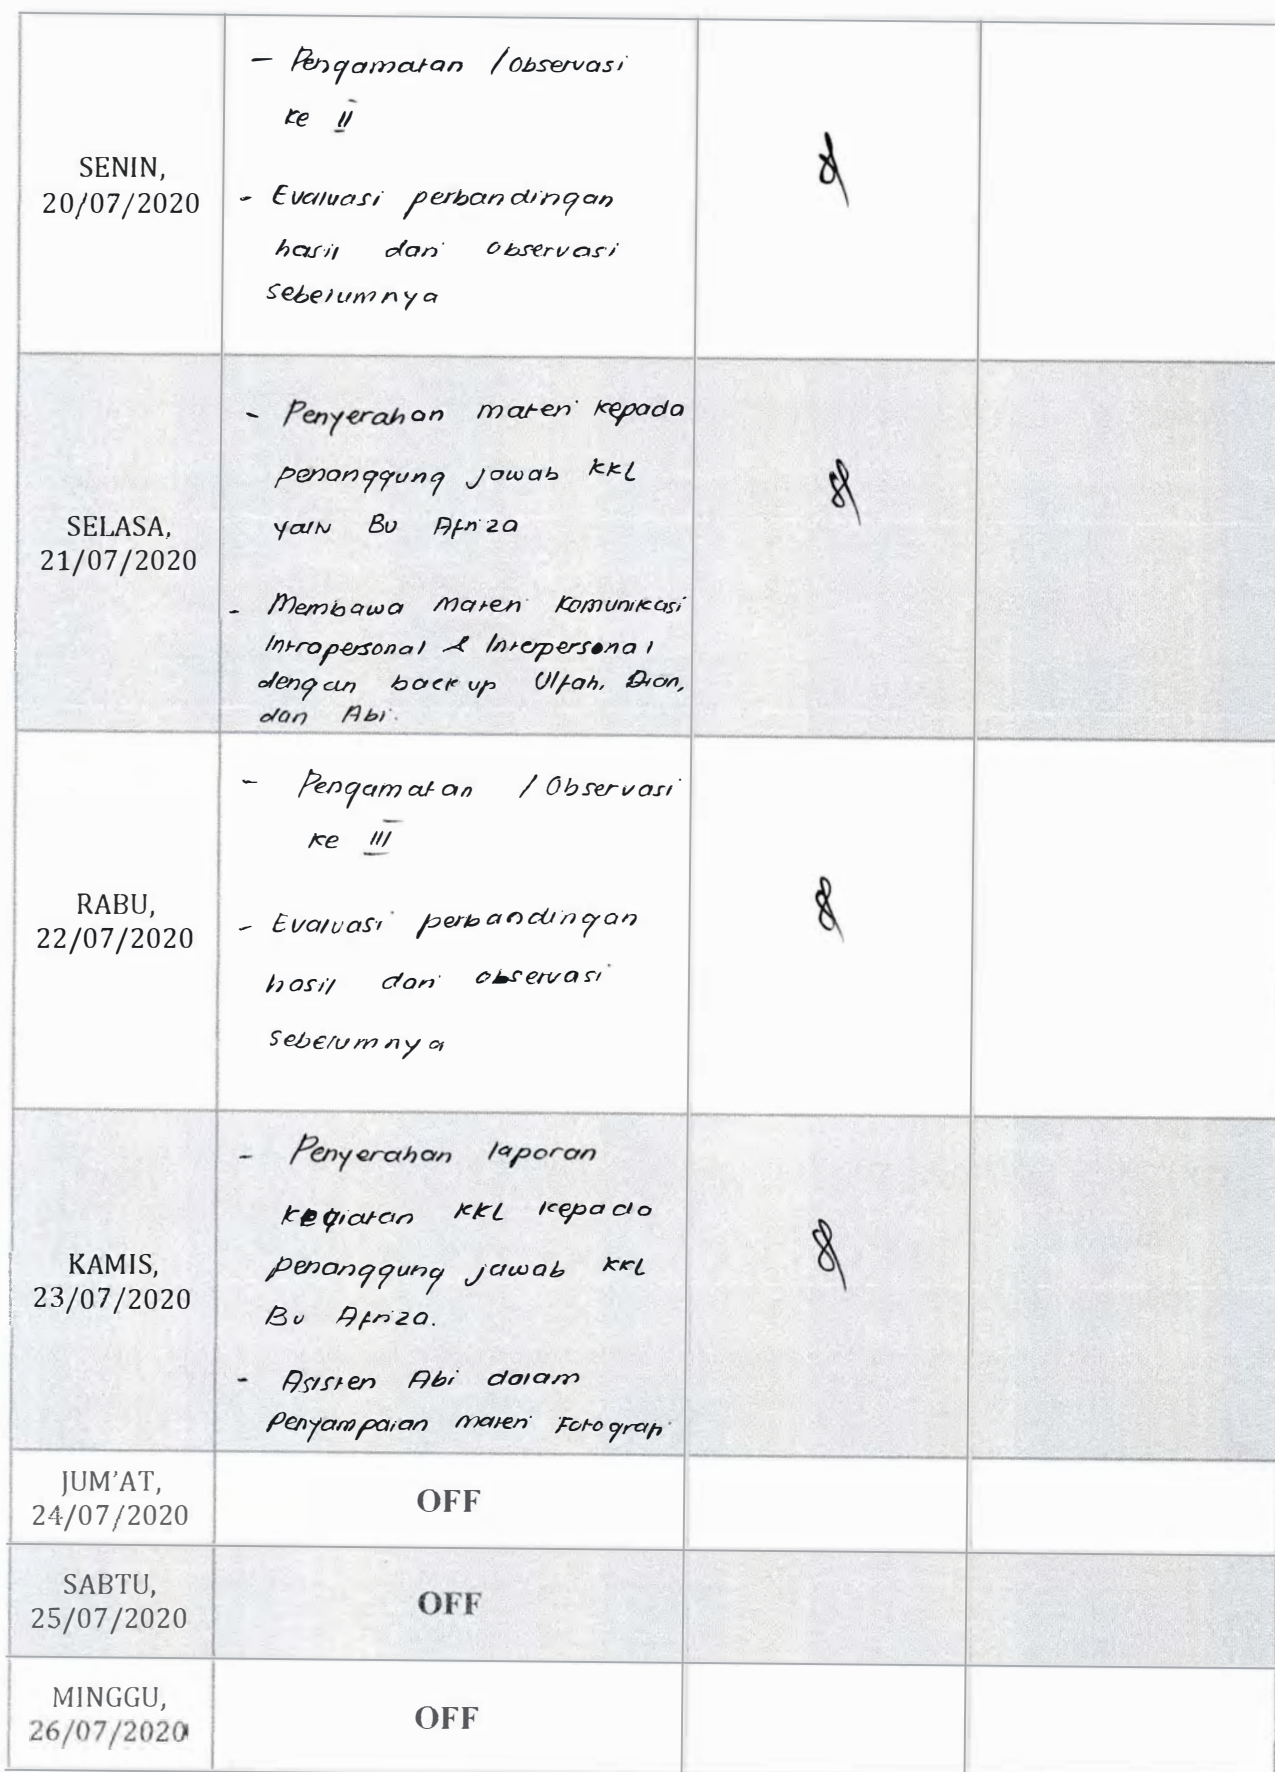 SENIN,
20/07/2020
- Pengamatan / Observasi
ke II
- Evaluasi perbandingan
hasil dari observasi
sebelumnya
SELASA,
21/07/2020
- Penyerahan materi kepada
penanggung jawab KKL
yaitu Bu Afriza
- Membawa materi Komunikasi
Intrapersonal & Interpersonal
dengan back up Ulfah, Dian,
dan Abi.
RABU,
22/07/2020
- Pengamatan / Observasi
ke III
- Evaluasi perbandingan
hasil dari observasi
sebelumnya
KAMIS,
23/07/2020
- Penyerahan laporan
kegiatan KKL kepada
penanggung jawab KKL
Bu Afriza.
- Asisten Abi dalam
Penyampaian materi Fotografi
JUM'AT,
24/07/2020
OFF
SABTU,
25/07/2020
OFF
MINGGU,
26/07/2020
OFF